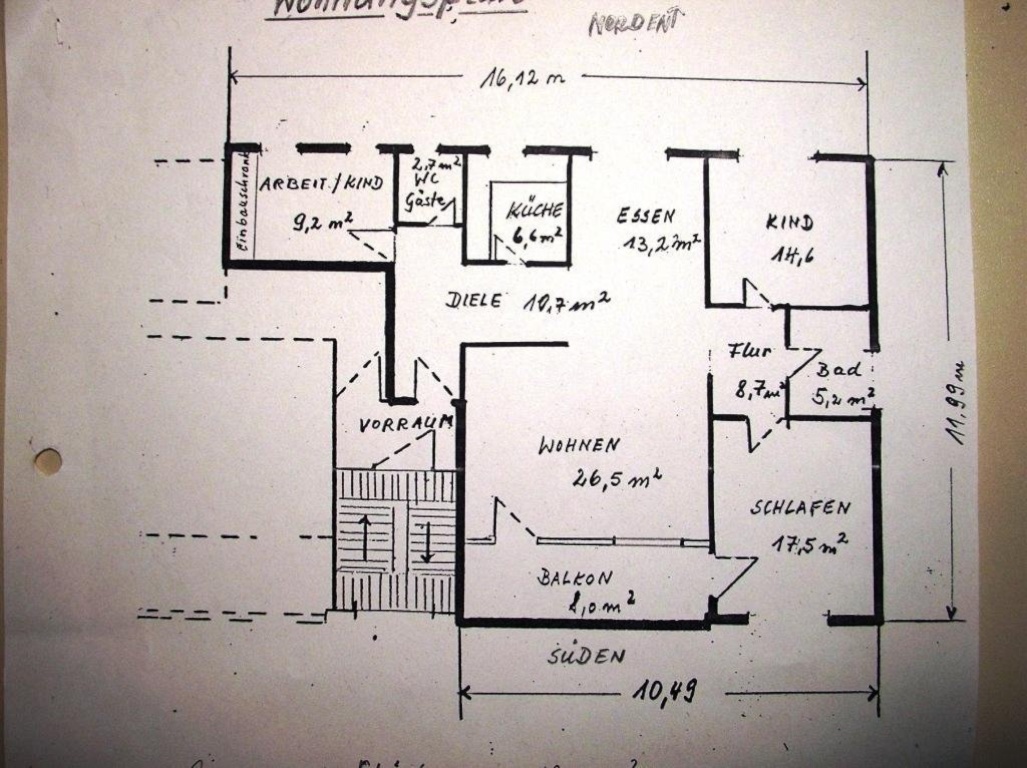 Wohnungsplan
NORDEN
16,12 m
Einbauschrank
ARBEIT./KIND
9,2 m²
2,7 m²
WC
Gäste
KÜCHE
6,6 m²
ESSEN
13,2 m²
KIND
14,6
DIELE 10,7 m²
Flur
8,7 m²
Bad
5,2 m²
11,99 m
VORRAUM
WOHNEN
26,5 m²
SCHLAFEN
17,5 m²
BALKON
8,0 m²
SÜDEN
10,49